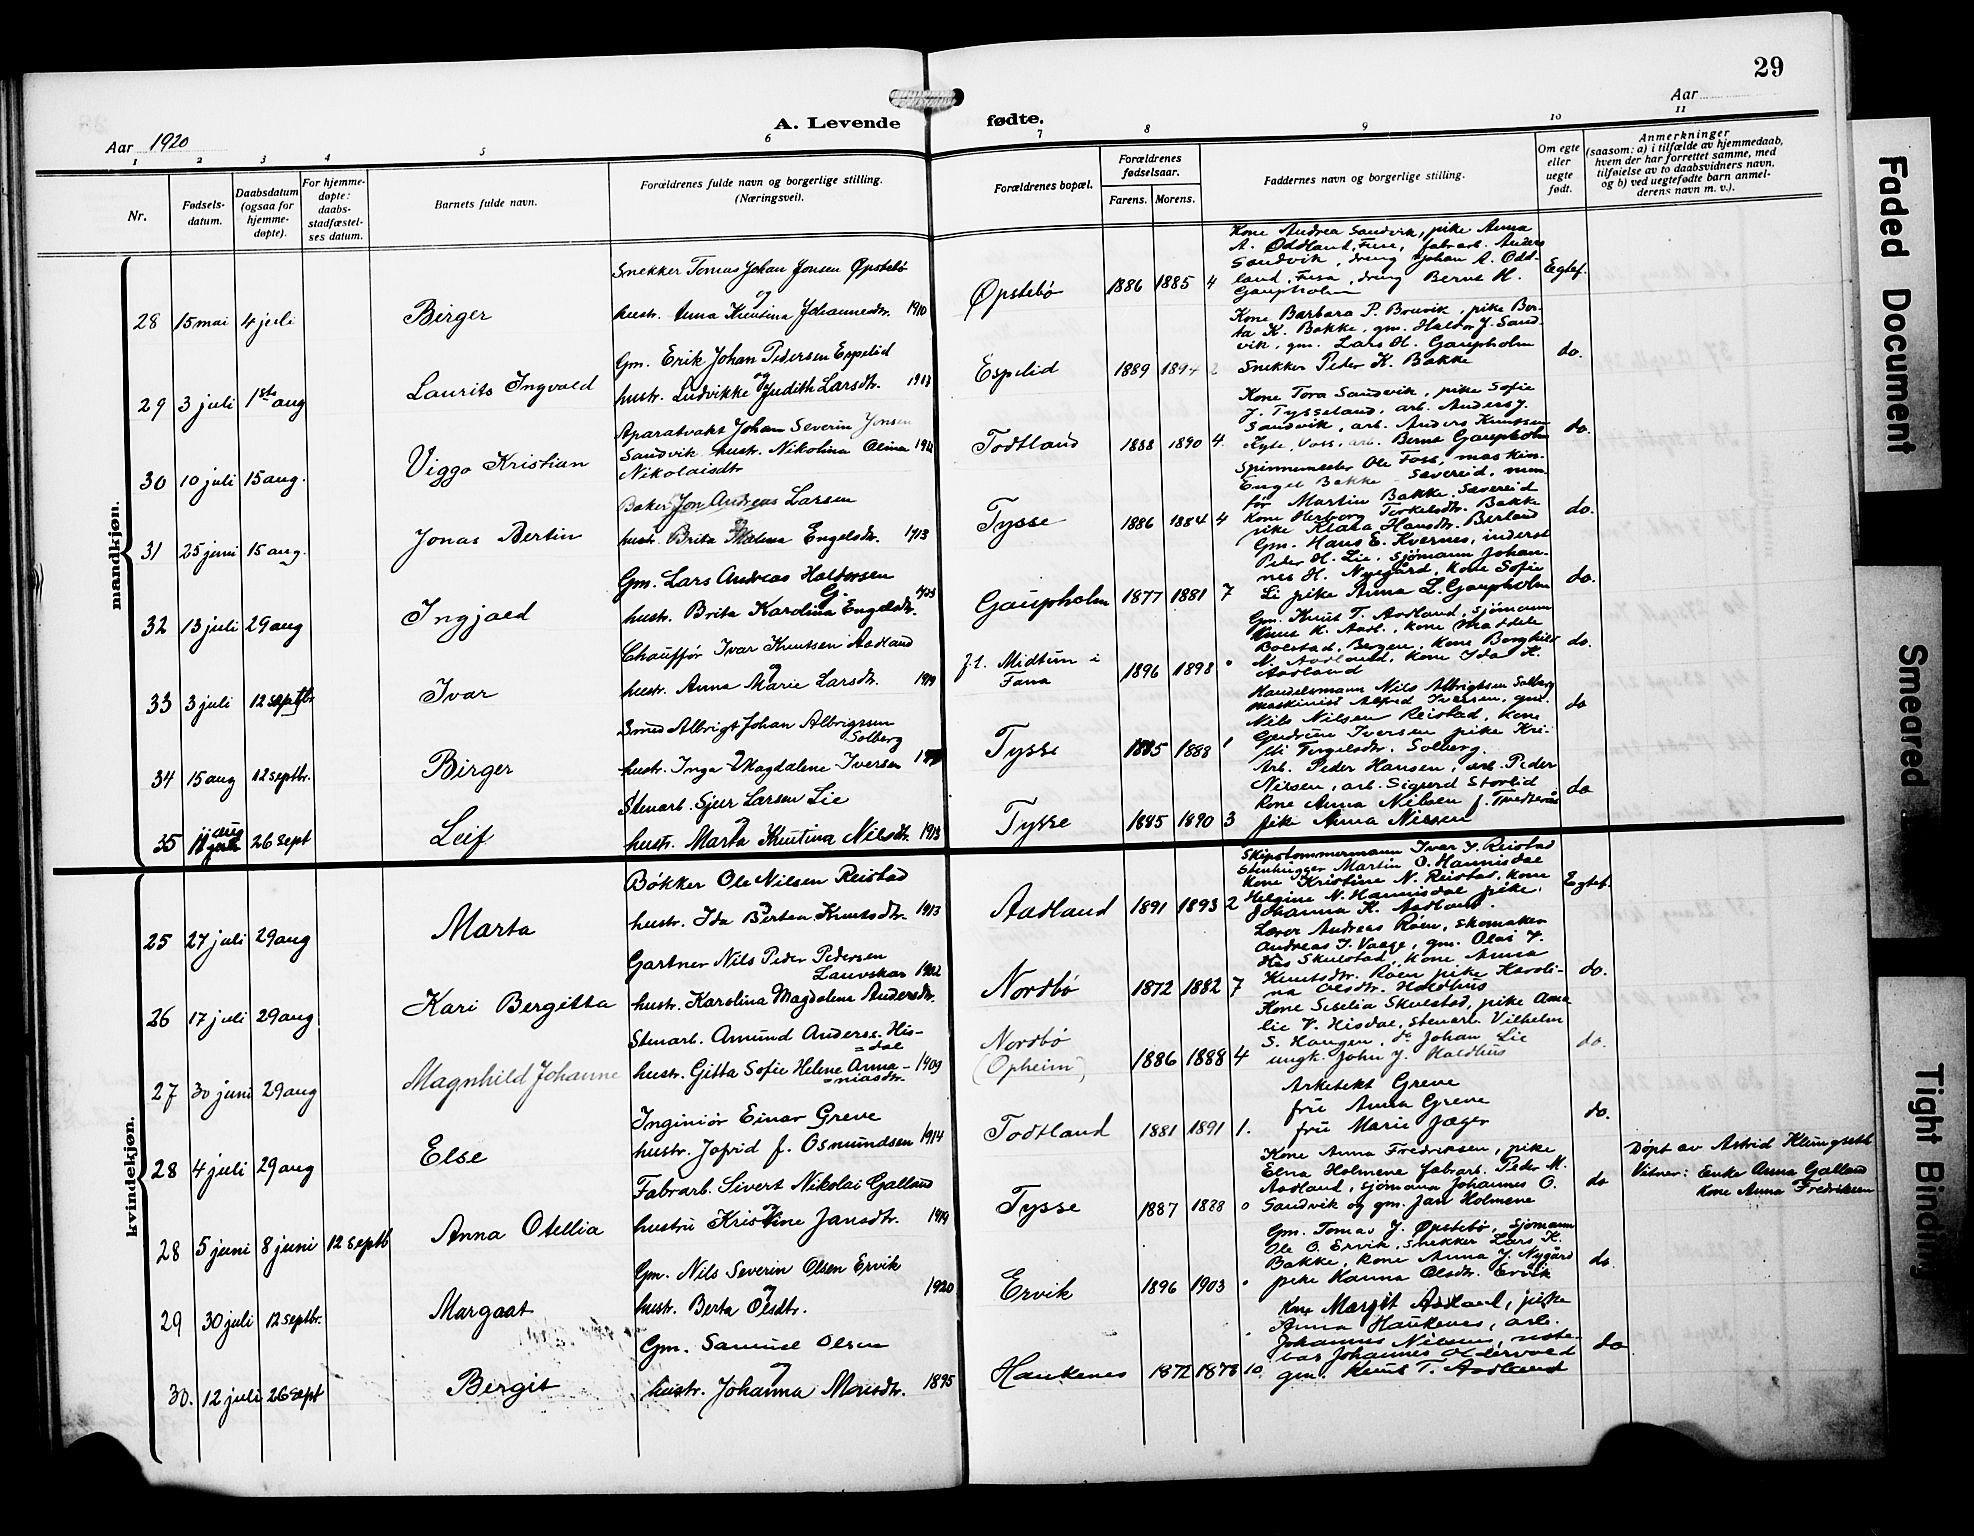 29
Aar 1920
A. Levende fødte.
Aar
1 2 3 4 5 6 7 8 9 10 11
Nr.
Fødsels-
datum.
Daabsdatum
(ogsaa for
hjemme-
døpte).
For hjemme-
døpte:
daabs-
stadfæstel-
ses datum.
Barnets fulde navn.
Forældrenes fulde navn og borgerlige stilling.
(Næringsvei).
Forældrenes bopæl.
Forældrenes
fødselsaar.
Farens. Morens.
Faddernes navn og borgerlige stilling.
Om egte
eller
uegte
født.
Anmerkninger
(saasom: a) i tilfælde av hjemmedaab,
hvem der har forrettet samme, med
tilføielse av to daabsvidners navn,
og b) ved uegtefødte barn anmel-
derens navn m. v.).
mandkjøn.
28 15 mai 4 juli Birger
Snekker Tomas Johan Jonsen Øpstebø
og
hustr. Anna Knutina Johannesdtr. 1910
Øpstebø 1886 1885 4
Kone Andrea Sandvik, pike Anna
A. Oddland, Fusa, fabrarb. Anders
Sandvik, dreng Johan A. Odd-
land, Fusa, dreng Bernt H.
Gaupholm
Egtef.
29 3 juli 1ste aug Laurits Ingvald
Gm. Erik Johan Pedersen Espelid
og
hustr. Ludvikke Judith Larsdtr. 1913
Espelid 1889 1894 2
Kone Barbara P. Bruvik, pike Ber-
ta K. Bakke, gm. Haldor J. Sand-
vik, gm. Lars H. Gaupholm
Snekker Peder K. Bakke
do.
30 10 juli 15 aug. Viggo Kristian
Aparatvakt Johan Severin Jonsen
Sandvik hustr. Nikolina Olina
Nikolaisdtr
Todtland 1888 1890 4
Kone Tora Sandvik, pike Sofie
J. Tysseland, arb. Anders J.
Sandvik, arb. Anders Knutsen
Kyte, Voss, arb. Bernt Gaupholm
do.
31 25 juni 15 aug. Jonas Bertin
Baker Jon Andreas Larsen
og
hustr. Brita Malena Engelsdtr. 1913
Tysse 1886 1884 4
Spinnemester Ole Foss, maskin-
Engel Bakke Sævereid, mon-
før Martin Bakke Sævereid
Kone Herborg Torkelsdtr. Bakke
pike Klara Hansdtr. Berland
do.
32 13 juli 29 aug Ingjald
Gm. Lars Andreas Haldorsen
G.
hustr. Brita Karolina Engelsdtr. 1903
Gaupholm 1877 1881 7
Gm. Hans E. Kvernes, inderst
Peder H. Lie, Sjømann Johan-
nes H. Nygård, Kone Sofie
Li pike Anna L. Gaupholm
do.
33 3 juli 12 septbr Ivar
Chauffør Ivar Knutsen Aadland
og
hustr. Anna Marie Larsdtr. 1919
f.t. Midtun i
Fana
1896 1898 0
Gm. Knut T. Aadland, Sjømann
Knut K. Aadl., Kone Maddele
Bolstad, Bergen, Kone Borghild
N. Aadland, Kone Ida K.
Aadland
do.
34 15 aug 12 septbr. Birger
Smed Albrigt Johan Albrigtsen
Solberg
hustr. Inga Magdalene Iversen
Tysse 1885 1888 1
Handelsmann Nils Albrigtsen Solberg
Maskinist Alfred Iversen, gm.
Nils Nilsen Reistad, Kone
Gudrun Iversen pike Kri-
sti Torgelsdtr. Solberg.
do
35 11 aug 26 sept Leif
Stenarb. Sjur Larsen Lie
og
hustr. Marta Knutina Nilsdtr. 1913
Tysse 1885 1890 3
Arb. Peder Hansen, arb. Peder
Nilsen, arb. Sigurd Storlid
Kone Anna Nilsen f.
pike Anna Nilsen
do
kvindekjøn.
25 27 juli 29 aug Marta
Bøkker Ole Nilsen Reistad
og
hustr. Ida Bertea Knutsdtr. 1913
Aadland 1891 1893 2
Skipstømmermann Ivar J. Reistad
Stenhugger Martin O. Hannisdal
Kone Kristine N. Reistad, Kone
Helgine N. Hannisdal pike
Johanna K. Aadland.
Egtef.
26 17 juli 29 aug Kari Bergitta
Gartner Nils Peder Pedersen
Lauvskar 1902
hustr. Karolina Magdalena Andersdtr.
Nordbø 1872 1882 7
Lærer Andreas Røen, Skomaker
Andreas J. Vaage, gm. Olai J.
Skulstad, Kone Anna
Knutsdtr. Røen pike Karoli-
na Olsdtr. Holdhus
do.
27 30 juni 29 aug Magnhild Johanne
Stenarb. Amund Anders. His-
=dal
hustr. Gitta Sofie Helene Anna- 1909
=niasdtr.
Nordbø
(Opheim)
1886 1888 4
Kone Sesilia Skulstad, pike Ama
lie V. Hisdal, Stenarb. Vilhelm
S. Haugen, do Johan Lie
ungk. John J. Holdhus
do.
28 4 juli 29 aug Else
Inginiør Einar Greve
hustr. Jofrid f. Osmundsen 1914
Todtland 1881 1891 1.
Arkitekt Greve
fru Anna Greve
fru Marie Jæger
do.
28 5 juni 8 juni 12 septb Anna Otellia
Fabrarb. Sivert Nikolai Galland
og
hustru Kristine Jansdtr. 1919
Tysse 1887 1888 0
Kone Anna Fredriksen, pike
Elna Holmene fabrarb. Peder M.
Aadland, Sjømann Johannes O.
Sandvik og gm. Jan Holmene
do
Døpt av Astrid Klungseth
Vitner: Enke Anna Galland
Kone Anna Fredriksen
29 30 juli 12 septbr. Margaat
Gm. Nils Severin Olsen Ervik
og
hustr. Berta Olsdtr. 1920
Ervik 1896 1903 0
Gm. Tomas J. Øpstebø, Sjømann
Ole O. Ervik, Snekker Lars K.
Bakke, Kone Anna J. Nygård
pike Hanna Olsdtr. Ervik
do.
30. 12 juli 26 sept Bergit
Gm. Samuel Olsen
og
hustr. Johanna Monsdtr. 1895
Haukenes 1872 1873 10
Kone Margit Aadland, pike
Anna Haukenes, arb.
Johannes Nilsen,
Johannes Oldervold
gm. Knut T. Aadland
do
Faded Document
Smeared
Tight Binding